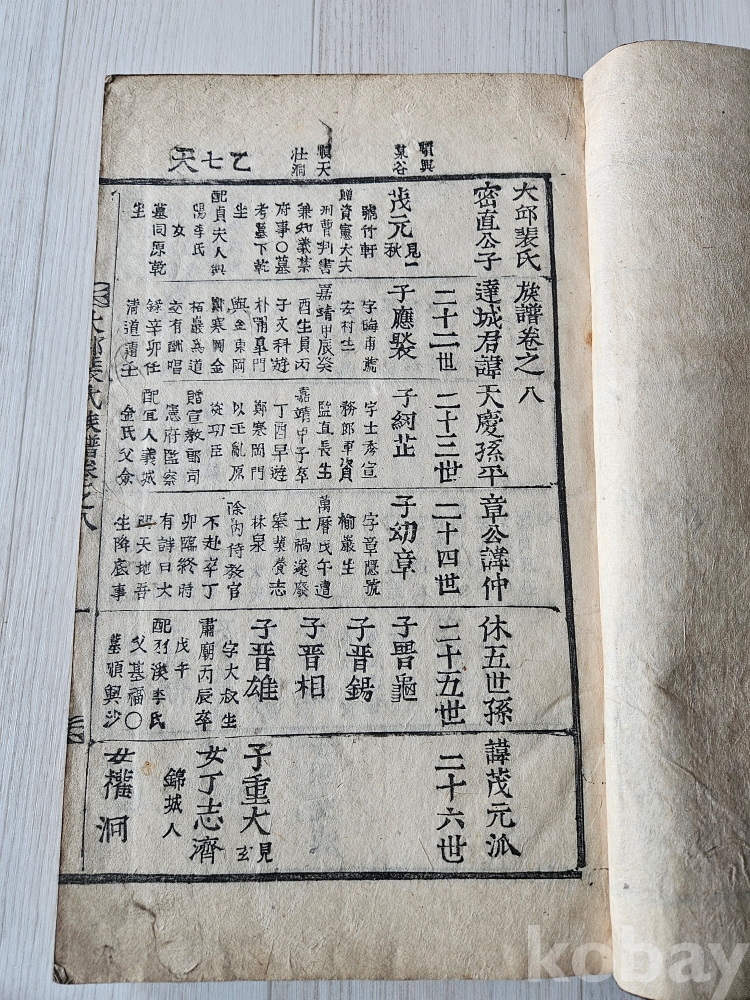 順興
葉谷
順天
壯洞
乙七天
大邱裴氏族譜卷之八
密直公子達城君諱天慶孫平章公諱仲休五世孫諱茂元派
二十二世
二十三世
二十四世
二十五世
二十六世
茂元見一秋
號竹軒
贈資憲大夫
刑曹判書
兼知義禁
府事〇墓
考墓下乾
坐
配貞夫人興
陽李氏
女
墓同原乾
坐
子應褧
字晦甫號
安村生
嘉靖甲辰癸
酉生員丙
子文科遊
朴嘯皐門
與金東岡
鄭寒岡金
柏巖爲道
交有酬唱
錄辛卯任
清道壬
子紉芷
字士秀宣
務郎軍資
監直長生
嘉靖甲子卒
丁酉早遊
鄭寒岡門
以壬亂原
從功臣
贈宣教郎司
憲府監察
配宜人義城
金氏父僉
子幼章
字章隱號
楡巖生
萬曆戊午遭
士禍遂廢
擧業養志
林泉
除內侍教官
不赴卒丁
卯臨終時
有詩曰大
明天地吾
生降底事
子晋龜
子晋錫
子晋相
子晋雄
字大叔生
肅廟丙辰卒
戊午
配羽溪李氏
父基福〇
墓順興沙
子重大見玄
女丁志濟
錦城人
女權泂
大邱裴氏族譜卷之八
kobay